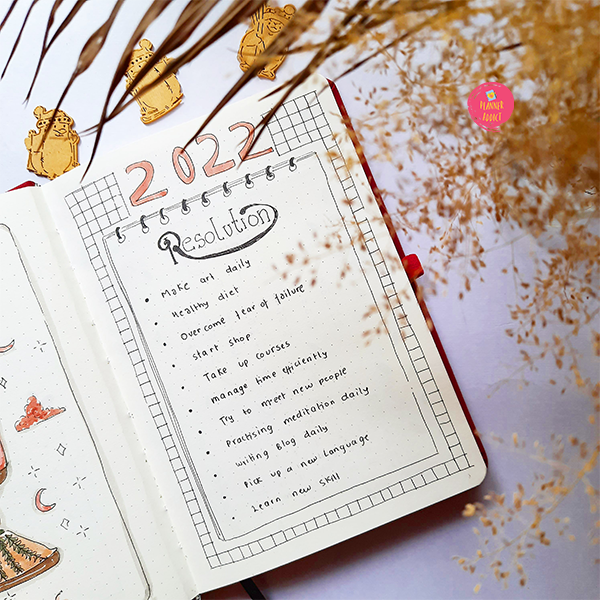 2022
Resolution
Make art daily
Healthy diet
Overcome fear of failure
start shop
Take up courses
manage time efficiently
Try to meet new people
practising meditation daily
writing Blog daily
Pick up a new Language
Learn new skill
PLANNER
ADDICT